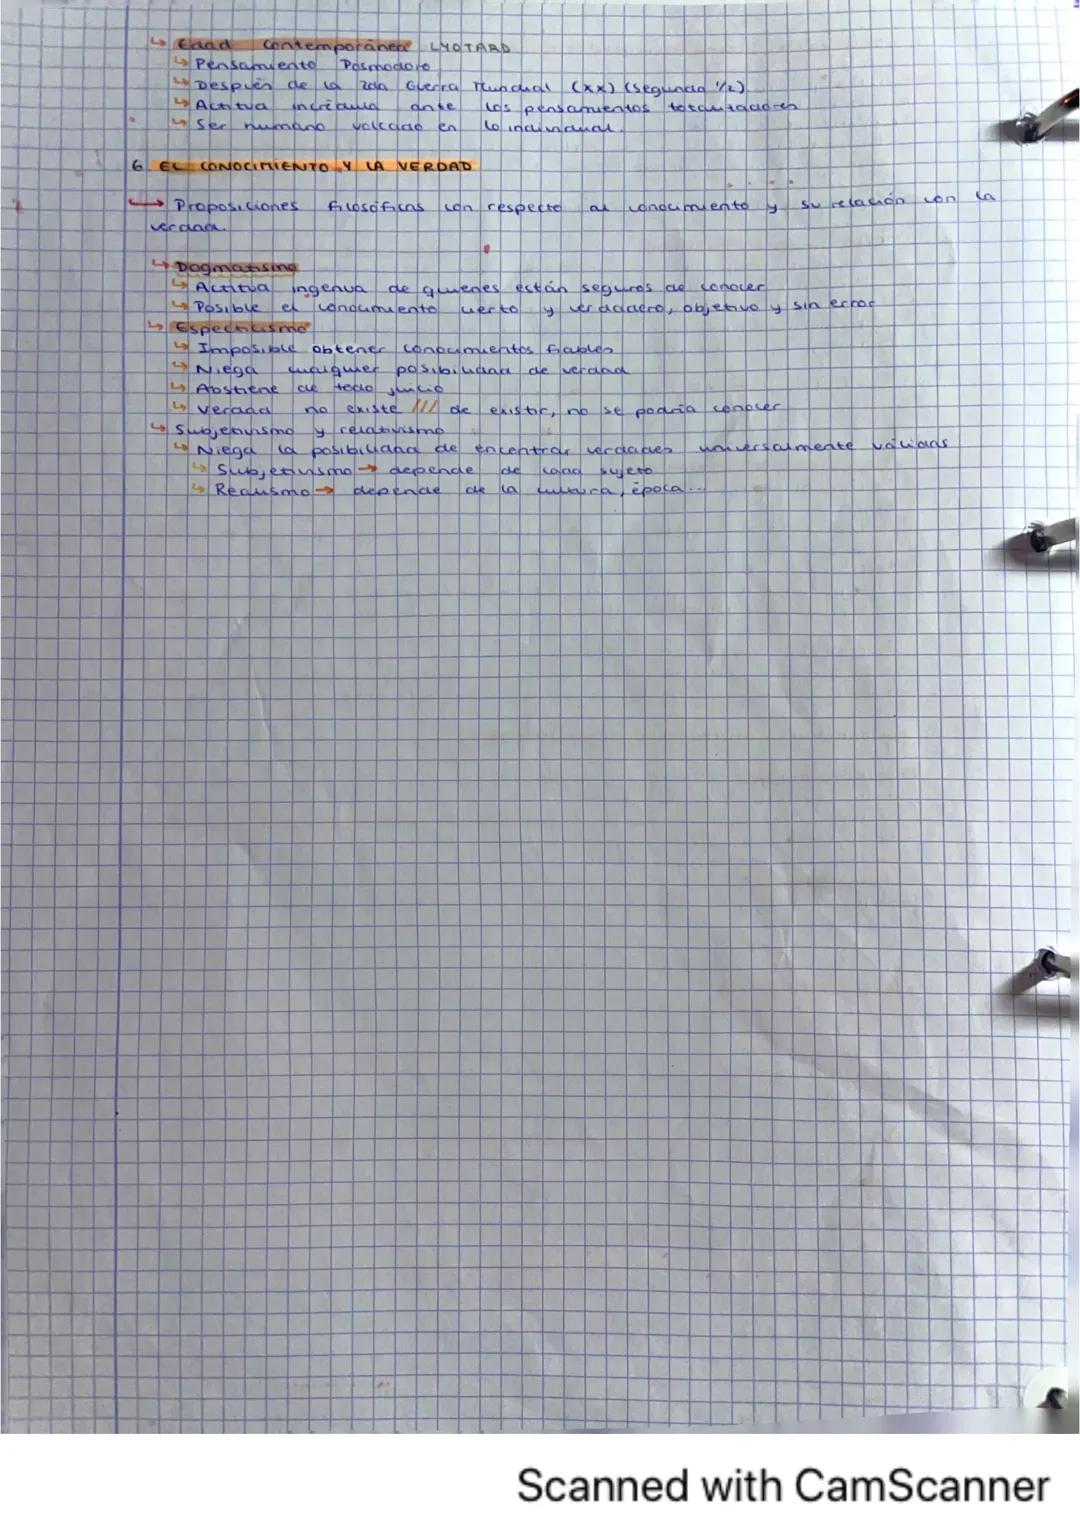 ↳ Edad Contemporánea LYOTARD
↳ Pensamiento Posmodoro
↳ Después de la 2da Guerra Mundial (XX) (segunda 1/2)
↳ Actitud incrédula ante los pensamientos totalizadores
↳ Ser humano volcado en lo individual.
6. EL CONOCIMIENTO Y LA VERDAD
→ Proposiciones filosóficas con respecto al conocimiento y su relación con la
verdad.
↳ Dogmatismo
↳ Actitud ingenua de quienes están seguros de conocer
↳ Posible el conocimiento cierto y verdadero, objetivo y sin error
↳ Espectisismo
↳ Imposible obtener conocimientos fiables
↳ Niega cualquier posibilidad de verdad
↳ Abstiene de todo juicio
↳ Verdad no existe /// de existir, no se podría conocer
↳ Subjetivismo y relativismo
↳ Niega la posibilidad de encontrar verdades universalmente válidas
↳ Subjetivismo → depende de cada sujeto
↳ Realismo → depende de la cultura, época...
Scanned with CamScanner